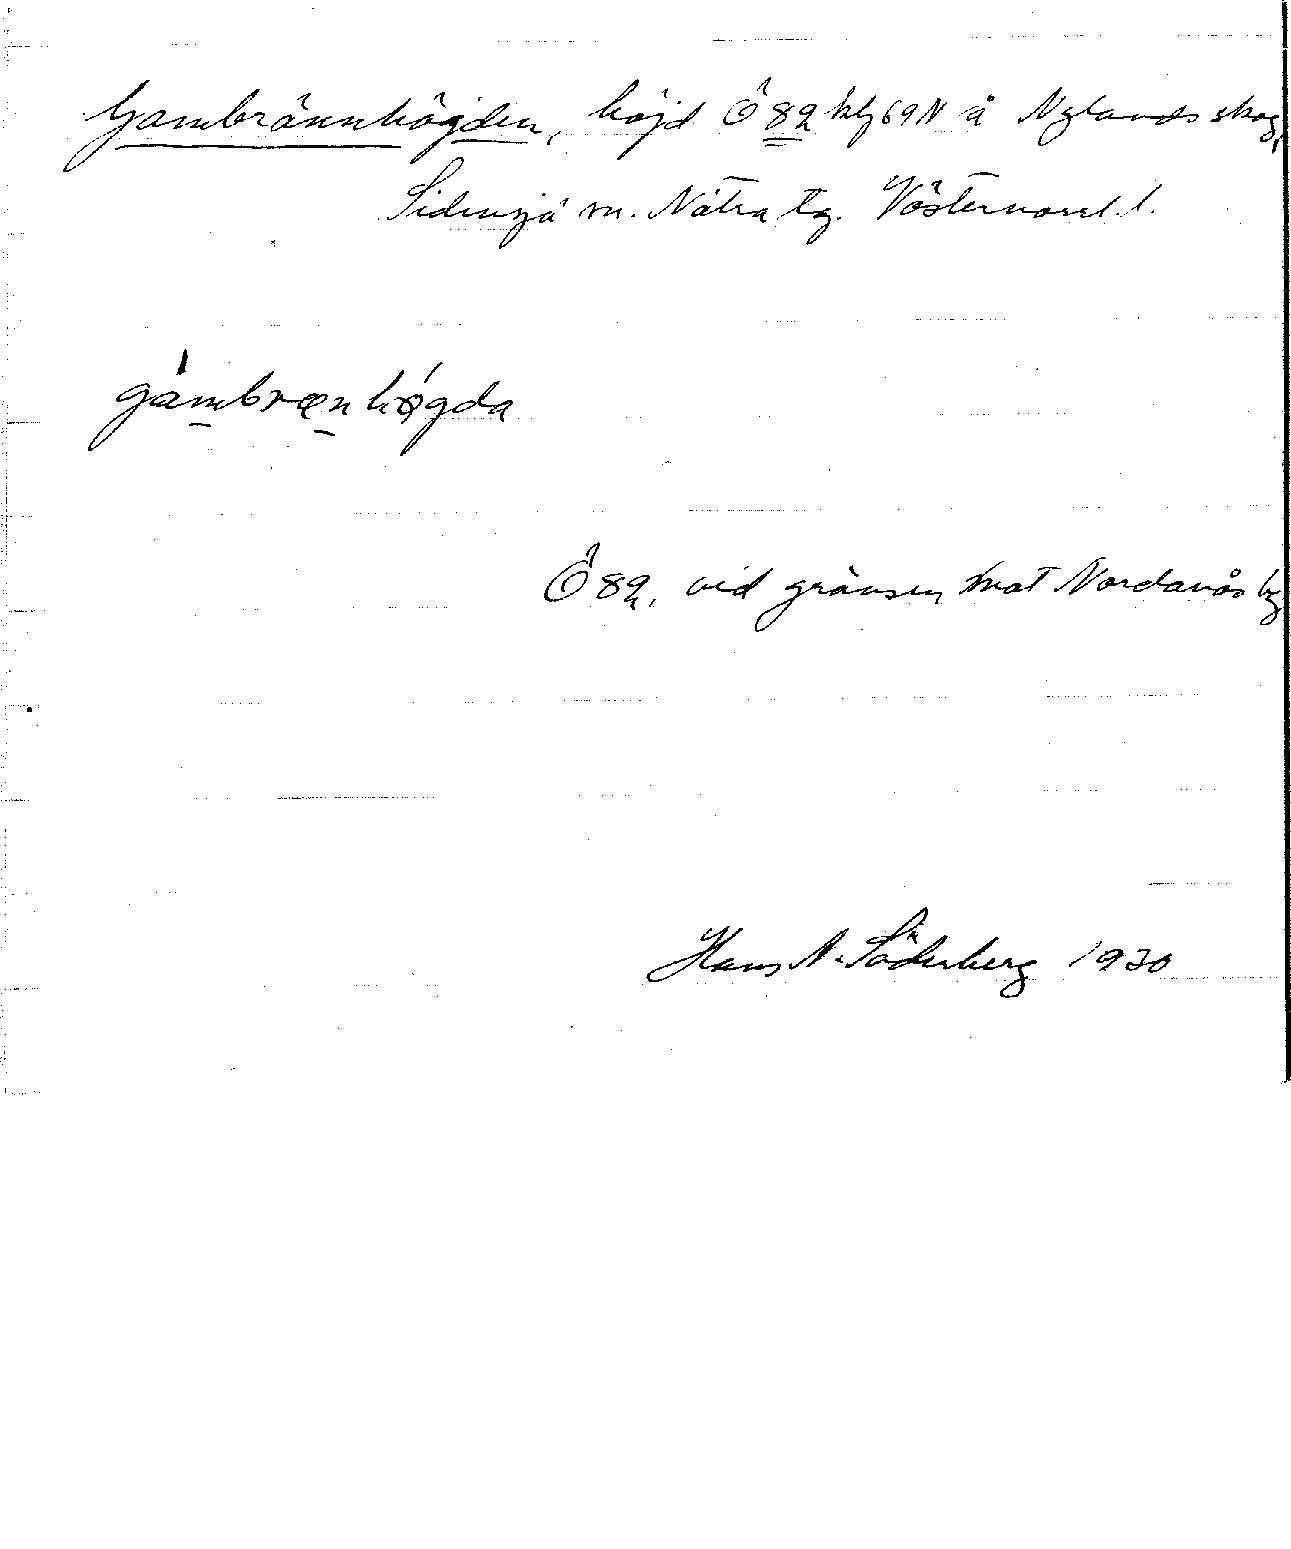 Gambrännhögden, höjd Ö 82 kbl 69 N å Nylands skog,
Sidensjö sn. Nätra tg. Västernorrl. l.
gambrænhøgda
Ö 82, vid gränsen mot Nordanås by
Hans N. Söderberg 1930